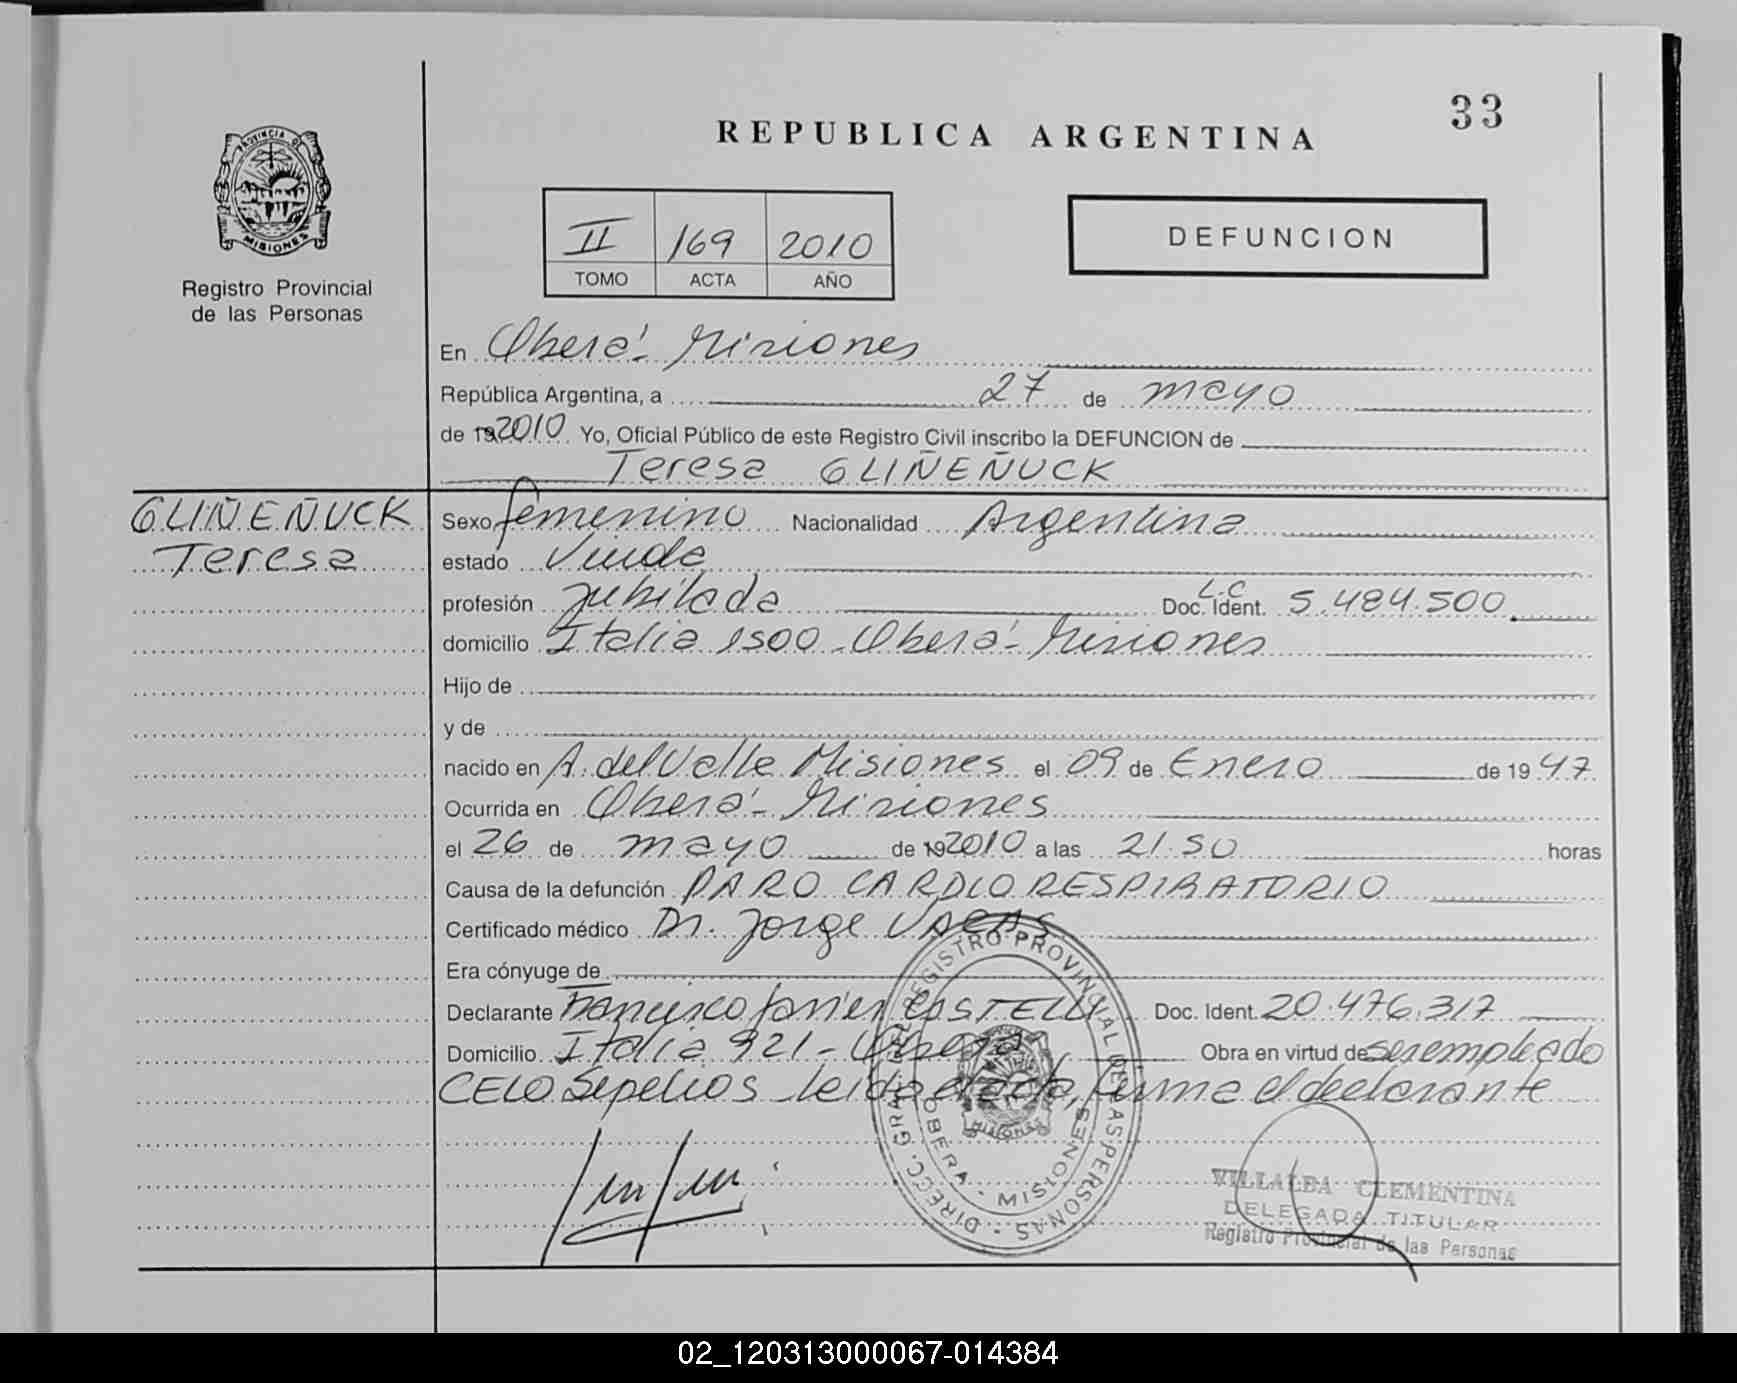 33
REPUBLICA ARGENTINA
PROVINCIA DE
MISIONES
Registro Provincial
de las Personas
II 169 2010
TOMO ACTA AÑO
DEFUNCION
En Oberá - Misiones
República Argentina, a 27 de mayo
de 192010 Yo, Oficial Público de este Registro Civil inscribo la DEFUNCION de
Teresa GLIÑEÑUCK
GLIÑEÑUCK
Teresa
Sexo femenino Nacionalidad Argentina
estado Viuda
profesión Jubilada Doc. Ident. L.C 5.484.500
domicilio Italia 1500 - Oberá - Misiones
Hijo de
y de
nacido en A. del Valle Misiones el 09 de Enero de 1947
Ocurrida en Oberá - Misiones
el 26 de mayo de 192010 a las 21.50 horas
Causa de la defunción PARO CARDIO RESPIRATORIO
Certificado médico Dr. Jorge
Era cónyuge de
Declarante Francisco Javier Doc. Ident. 20.476.317
Domicilio Italia 921 - Oberá Obra en virtud de ser empleado
CELO Sepelios leida el acta, firma el declarante
DIRECC. GRAL. DEL REGISTRO PROVINCIAL DE LAS PERSONAS
OBERA - MISIONES
MISIONES
VILLALBA CLEMENTINA
DELEGADA TITULAR
Registro Provincial de las Personas
02_120313000067-014384